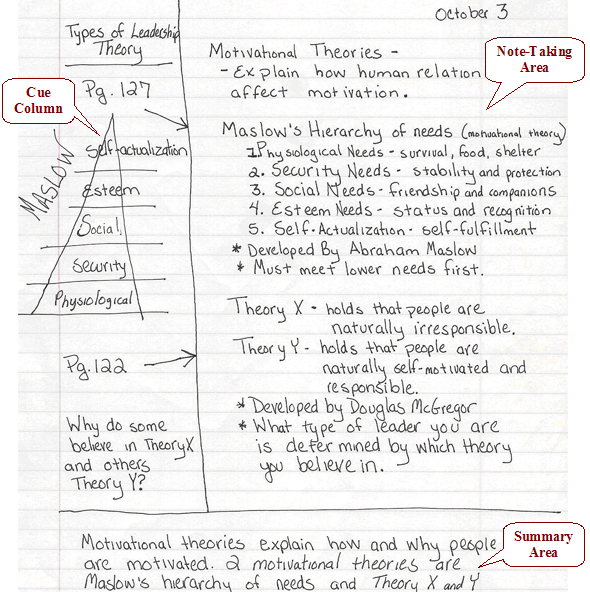 October 3
Types of Leadership
Theory
Pg. 127
Cue
Column
MASLOW
Self-actualization
Esteem
Social
Security
Physiological
Pg. 122
Why do some
believe in Theory X
and others
Theory Y?
Note-Taking
Area
Motivational Theories -
- Explain how human relation
affect motivation.
Maslow's Hierarchy of needs (motivational theory)
1. Physiological Needs - survival, food, shelter
2. Security Needs - stability and protection
3. Social Needs - friendship and companions
4. Esteem Needs - status and recognition
5. Self-Actualization - self-fulfillment
* Developed By Abraham Maslow
* Must meet lower needs first.
Theory X - holds that people are
naturally irresponsible.
Theory Y - holds that people are
naturally self-motivated and
responsible.
* Developed by Douglas McGregor
* What type of leader you are
is determined by which theory
you believe in.
Summary
Area
Motivational theories explain how and why people
are motivated. 2 motivational theories are
Maslow's hierarchy of needs and Theory X and Y